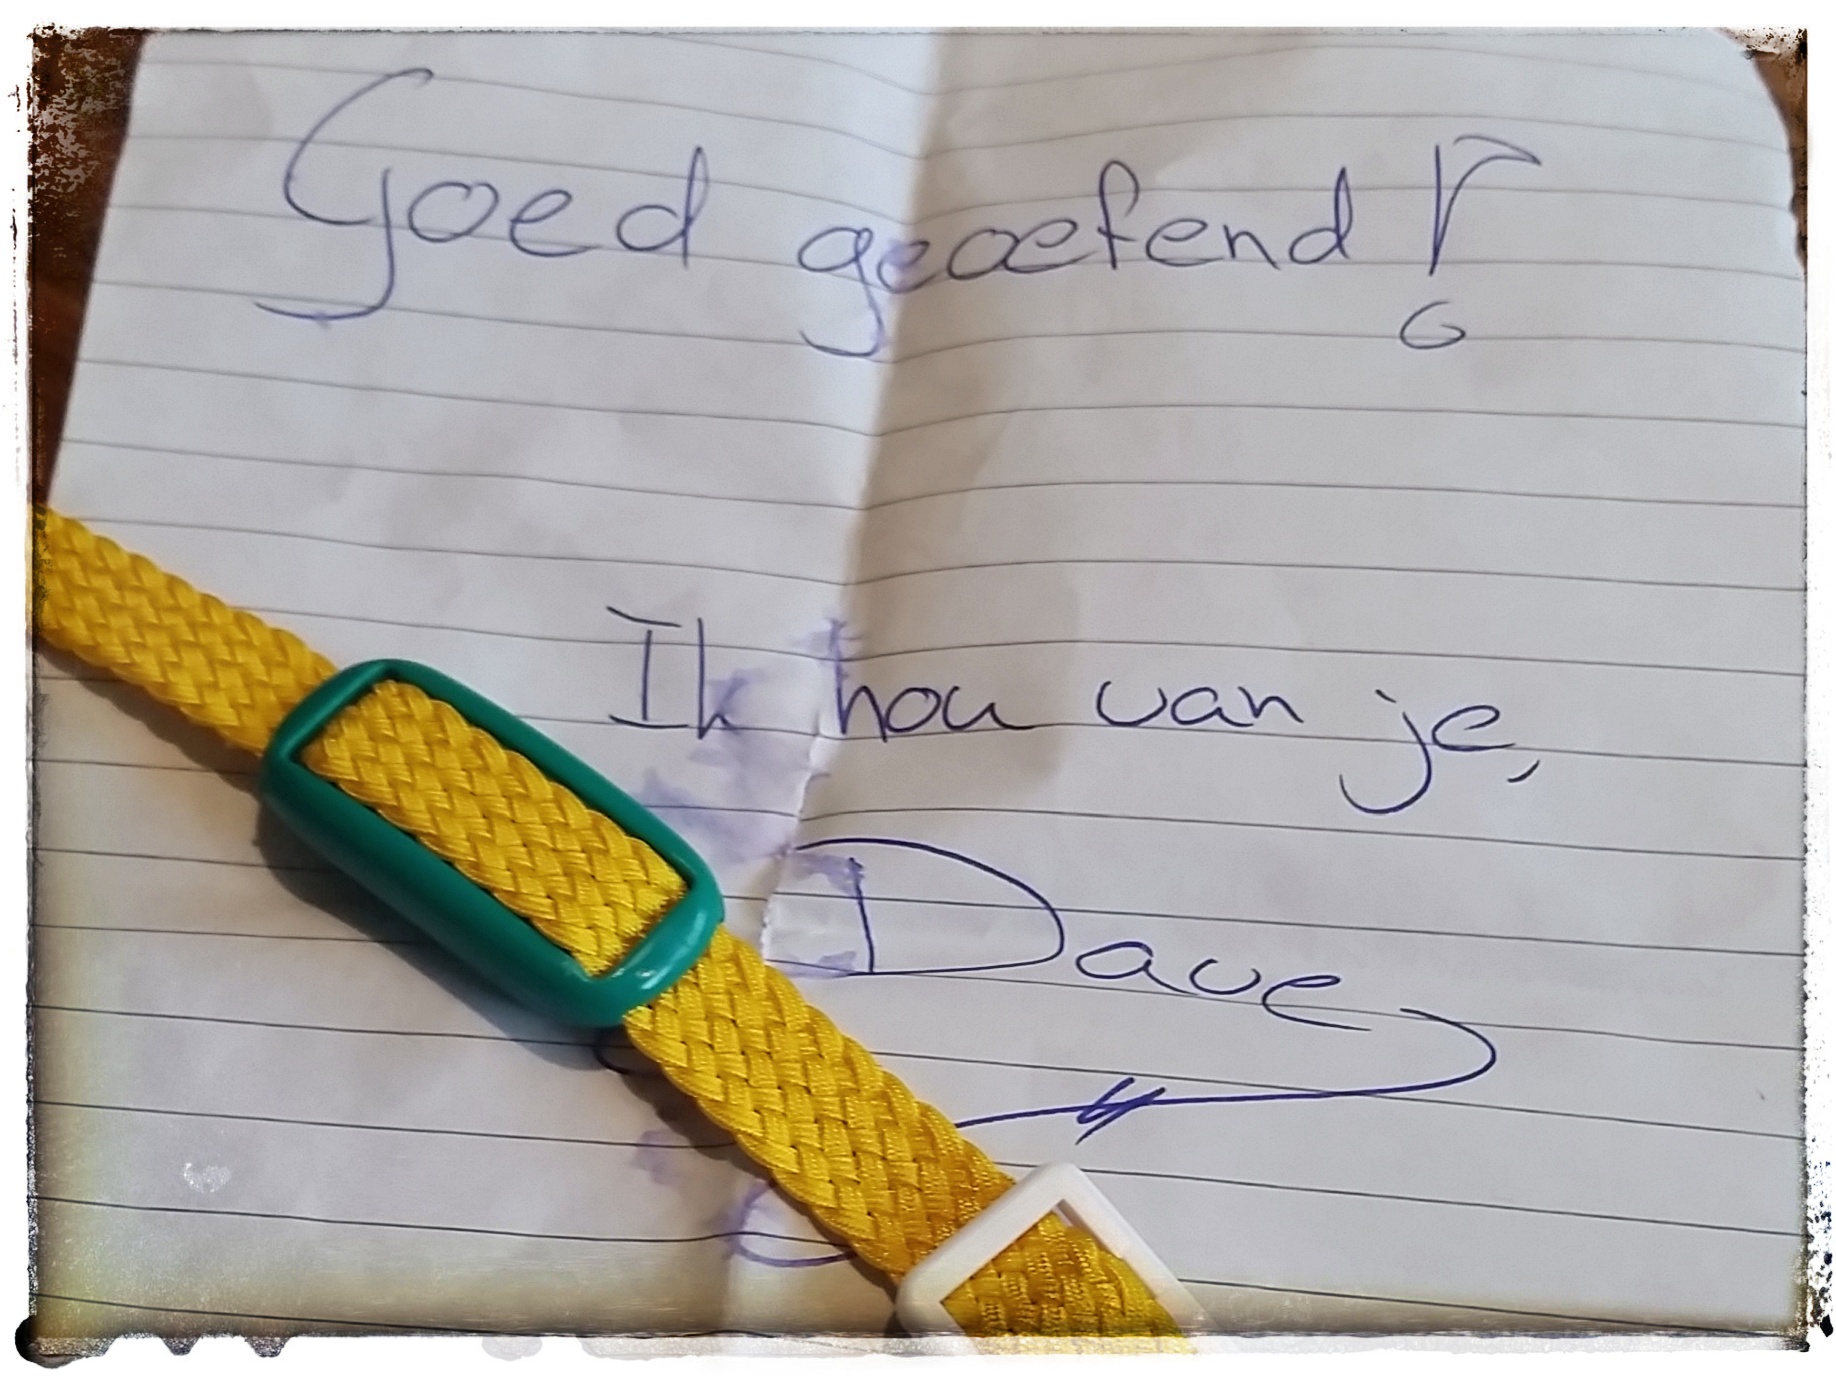 Goed geoefend!
Ik hou van je,
Dave